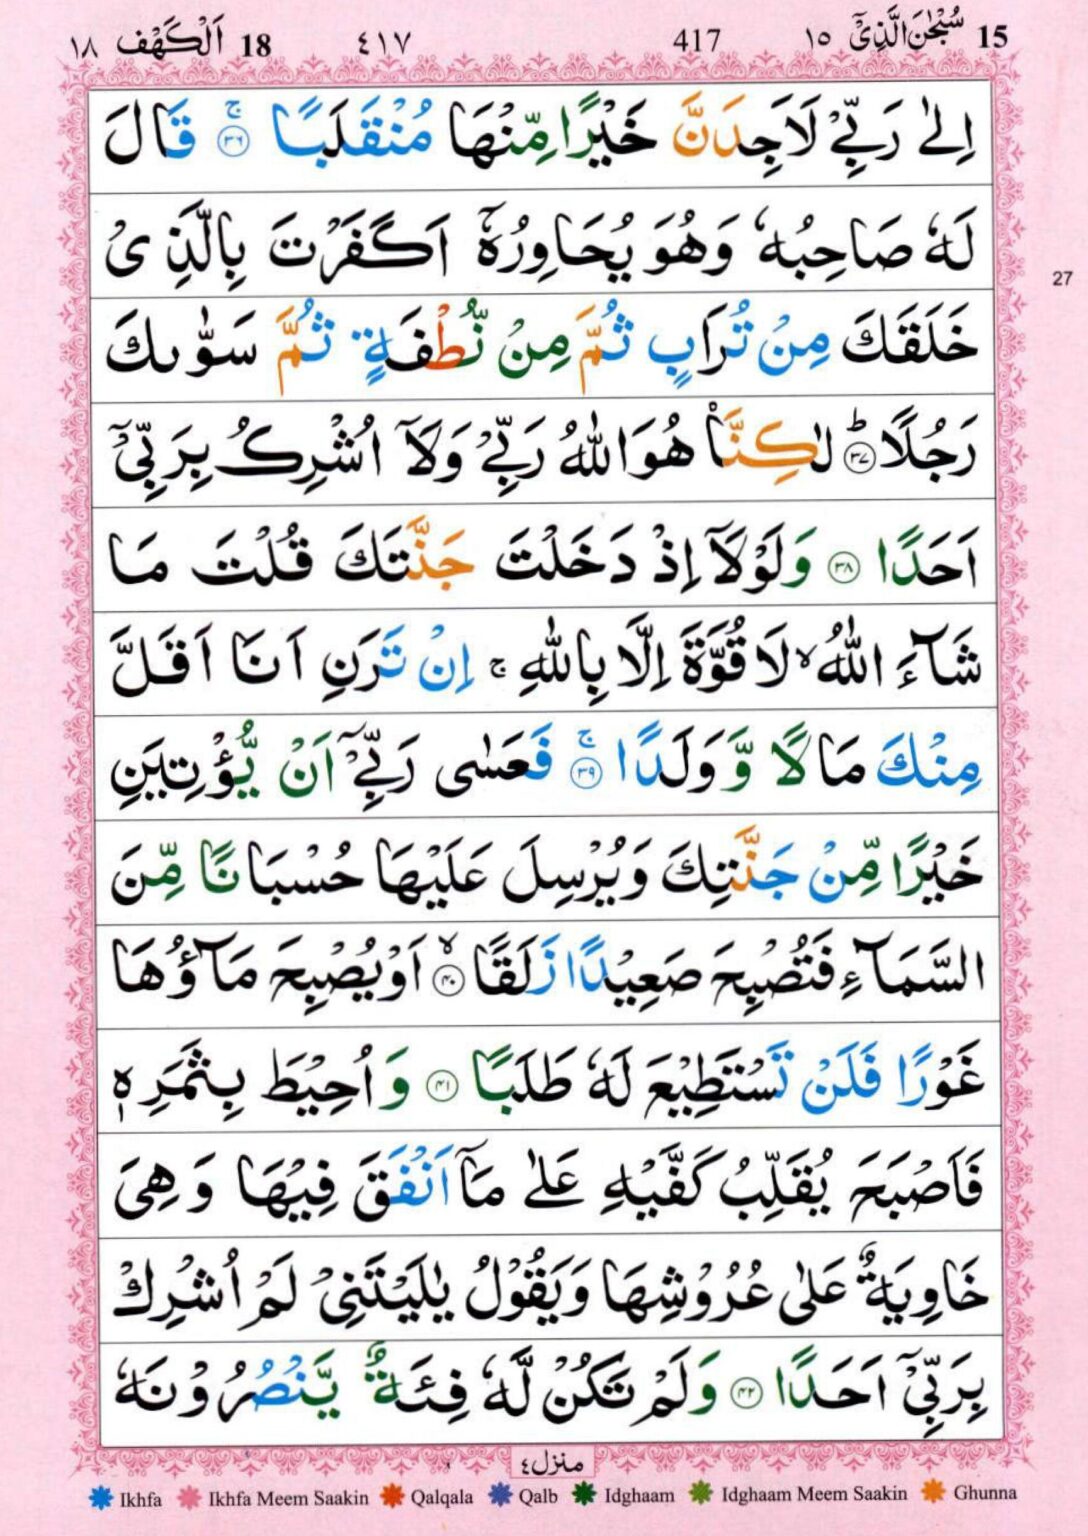 15 سُبْحٰنَ الَّذِیْۤ ١٥ 417 ٤١٧ 18 اَلْکَهْف ١٨
اِلٰی رَبِّیْ لَاَجِدَنَّ خَیْرًا مِّنْهَا مُنْقَلَبًا ۚ ﴿۳۶﴾ قَالَ
لَهٗ صَاحِبُهٗ وَهُوَ یُحَاوِرُهٗۤ اَکَفَرْتَ بِالَّذِیْ
خَلَقَکَ مِنْ تُرَابٍ ثُمَّ مِنْ نُّطْفَةٍ ثُمَّ سَوّٰىکَ
رَجُلًا ؕ ﴿۳۷﴾ لٰکِنَّا۠ هُوَ اللّٰهُ رَبِّیْ وَلَاۤ اُشْرِکُ بِرَبِّیْۤ
اَحَدًا ﴿۳۸﴾ وَلَوْلَاۤ اِذْ دَخَلْتَ جَنَّتَکَ قُلْتَ مَا
شَآءَ اللّٰهُ ۙ لَا قُوَّةَ اِلَّا بِاللّٰهِ ۚ اِنْ تَرَنِ اَنَا اَقَلَّ
مِنْکَ مَالًا وَّ وَلَدًا ۚ ﴿۳۹﴾ فَعَسٰی رَبِّیْۤ اَنْ یُّؤْتِیَنِ
خَیْرًا مِّنْ جَنَّتِکَ وَیُرْسِلَ عَلَیْهَا حُسْبَانًا مِّنَ
السَّمَآءِ فَتُصْبِحَ صَعِیْدًا زَلَقًا ۙ ﴿۴۰﴾ اَوْ یُصْبِحَ مَآؤُهَا
غَوْرًا فَلَنْ تَسْتَطِیْعَ لَهٗ طَلَبًا ﴿۴۱﴾ وَ اُحِیْطَ بِثَمَرِهٖ
فَاَصْبَحَ یُقَلِّبُ کَفَّیْهِ عَلٰی مَاۤ اَنْفَقَ فِیْهَا وَ هِیَ
خَاوِیَةٌ عَلٰی عُرُوْشِهَا وَیَقُوْلُ یٰلَیْتَنِیْ لَمْ اُشْرِکْ
بِرَبِّیْۤ اَحَدًا ﴿۴۲﴾ وَلَمْ تَکُنْ لَّهٗ فِئَةٌ یَّنْصُرُوْنَهٗ
27
منزل ٤
Ikhfa Ikhfa Meem Saakin Qalqala Qalb Idghaam Idghaam Meem Saakin Ghunna